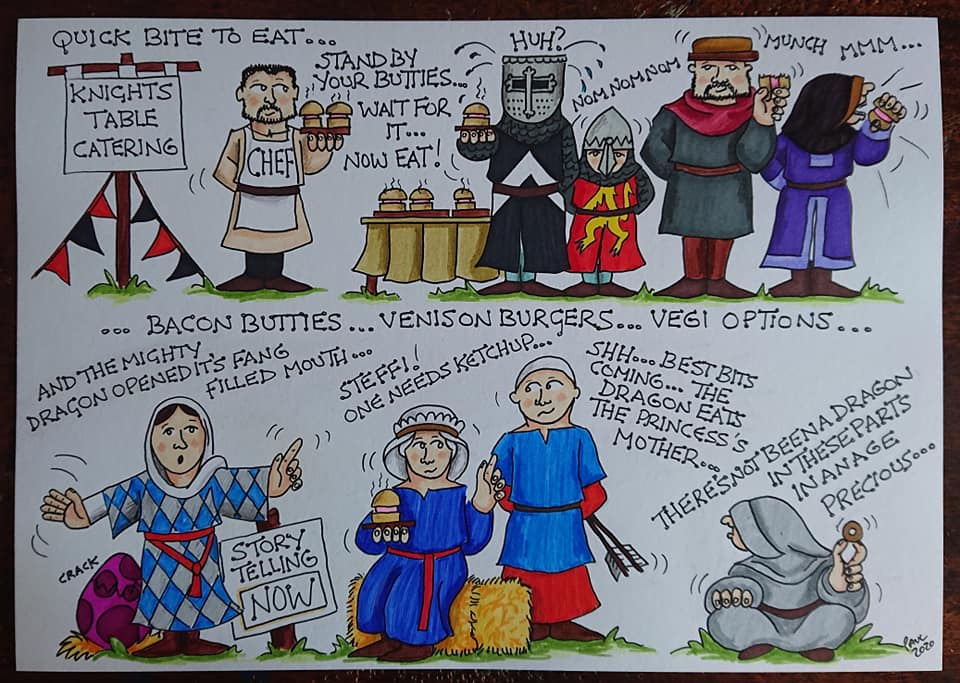 QUICK BITE TO EAT...
KNIGHTS
TABLE
CATERING
CHEF
STAND BY
YOUR BUTTIES...
WAIT FOR
IT...
NOW EAT!
HUH?
NOM NOM NOM
MUNCH
MMM...
... BACON BUTTIES... VENISON BURGERS... VEGI OPTIONS...
AND THE MIGHTY
DRAGON OPENED IT'S FANG
FILLED MOUTH...
CRACK
STORY
TELLING
NOW
STEFF!!
ONE NEEDS KETCHUP...
SHH... BEST BITS
COMING... THE
DRAGON EATS
THE PRINCESS'S
MOTHER...
THERE'S NOT BEEN A DRAGON
IN THESE PARTS
IN AN AGE
PRECIOUS...
2020